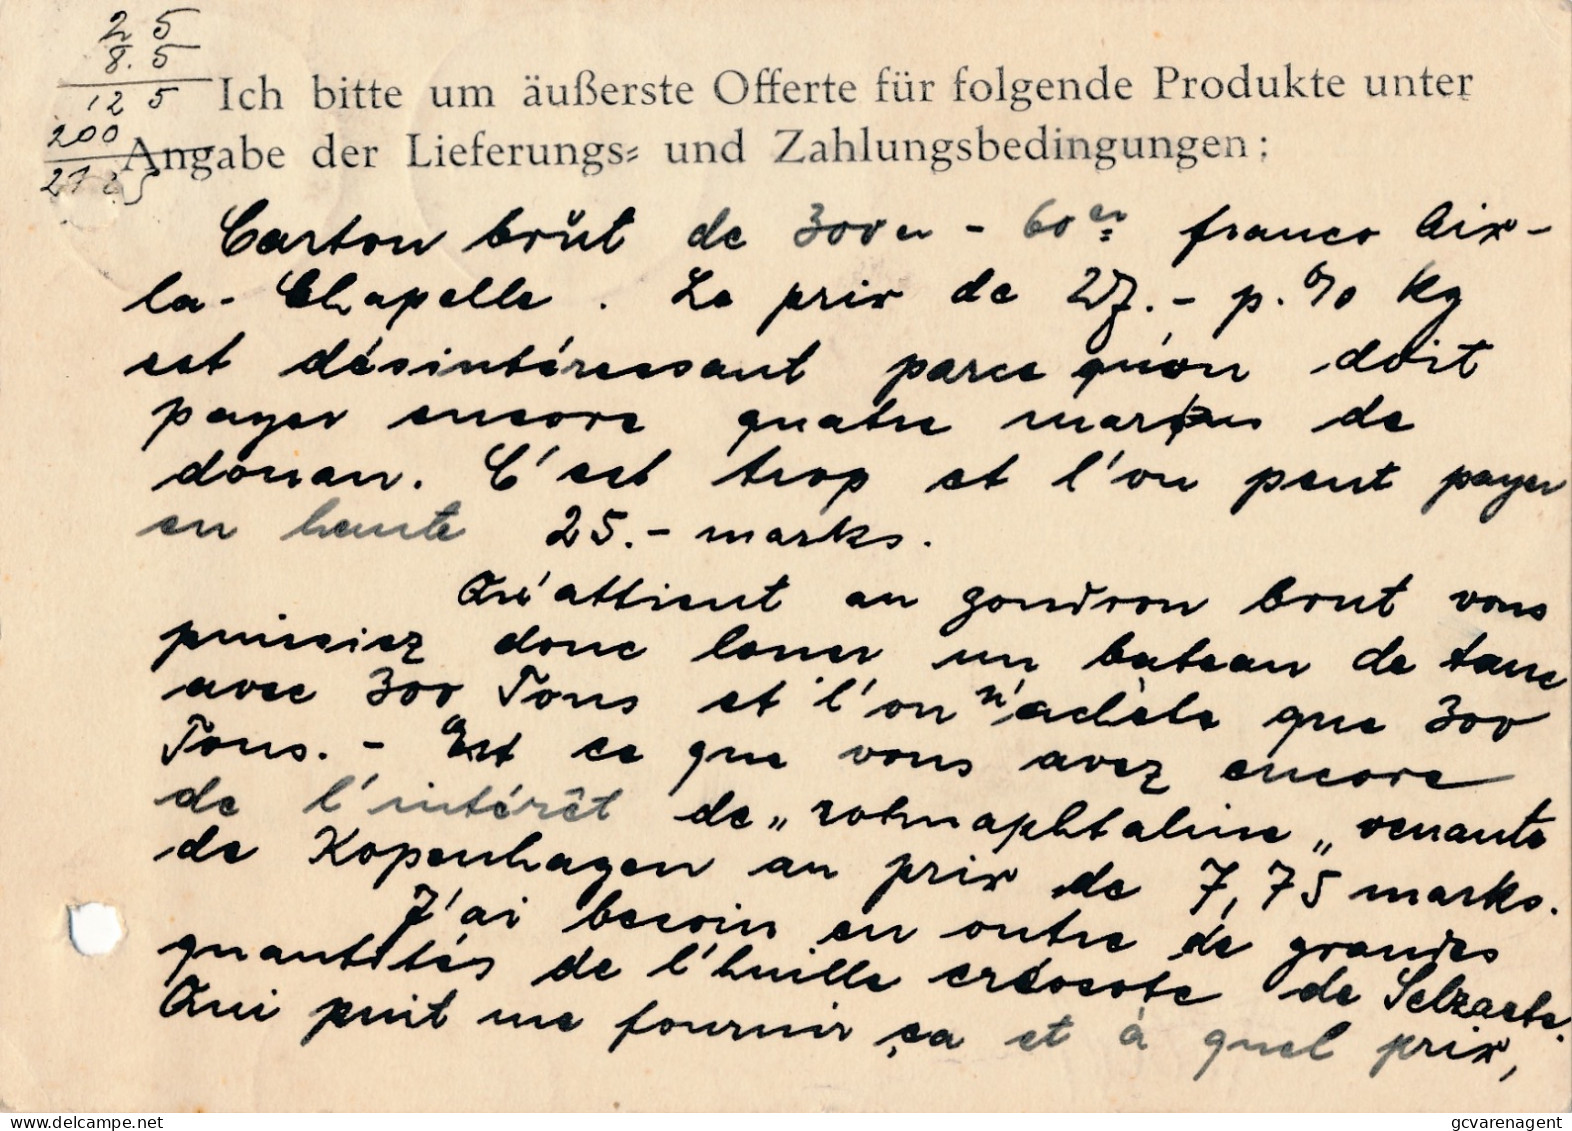 25
8.5
125
200
Ich bitte um äußerste Offerte für folgende Produkte unter
Angabe der Lieferungs= und Zahlungsbedingungen:
Carton brŭt de 300 - 60er franco Aix-
la-Chapelle. Le prix de % kg
est désintéressant parce qu'on doit
payer encore quatre de
douan. C'est trop et l'on peut payer
en haute 25.- marks.
Qu'attient au goudron brut vous
puissiez donc louer un bateau de tanc
avec 300 Tons et l'on n'achète que 300
Tons. - Est ce que vous avez encore
de l'intérêt de „rohnaphtaline„ venante
de Kopenhagen au prix de 7,75 marks.
J'ai besoin en outre de grandes
quantités de l'huille créosote de Selzaete.
Qui puit me fournir ça et à quel prix,
gcvarenagent